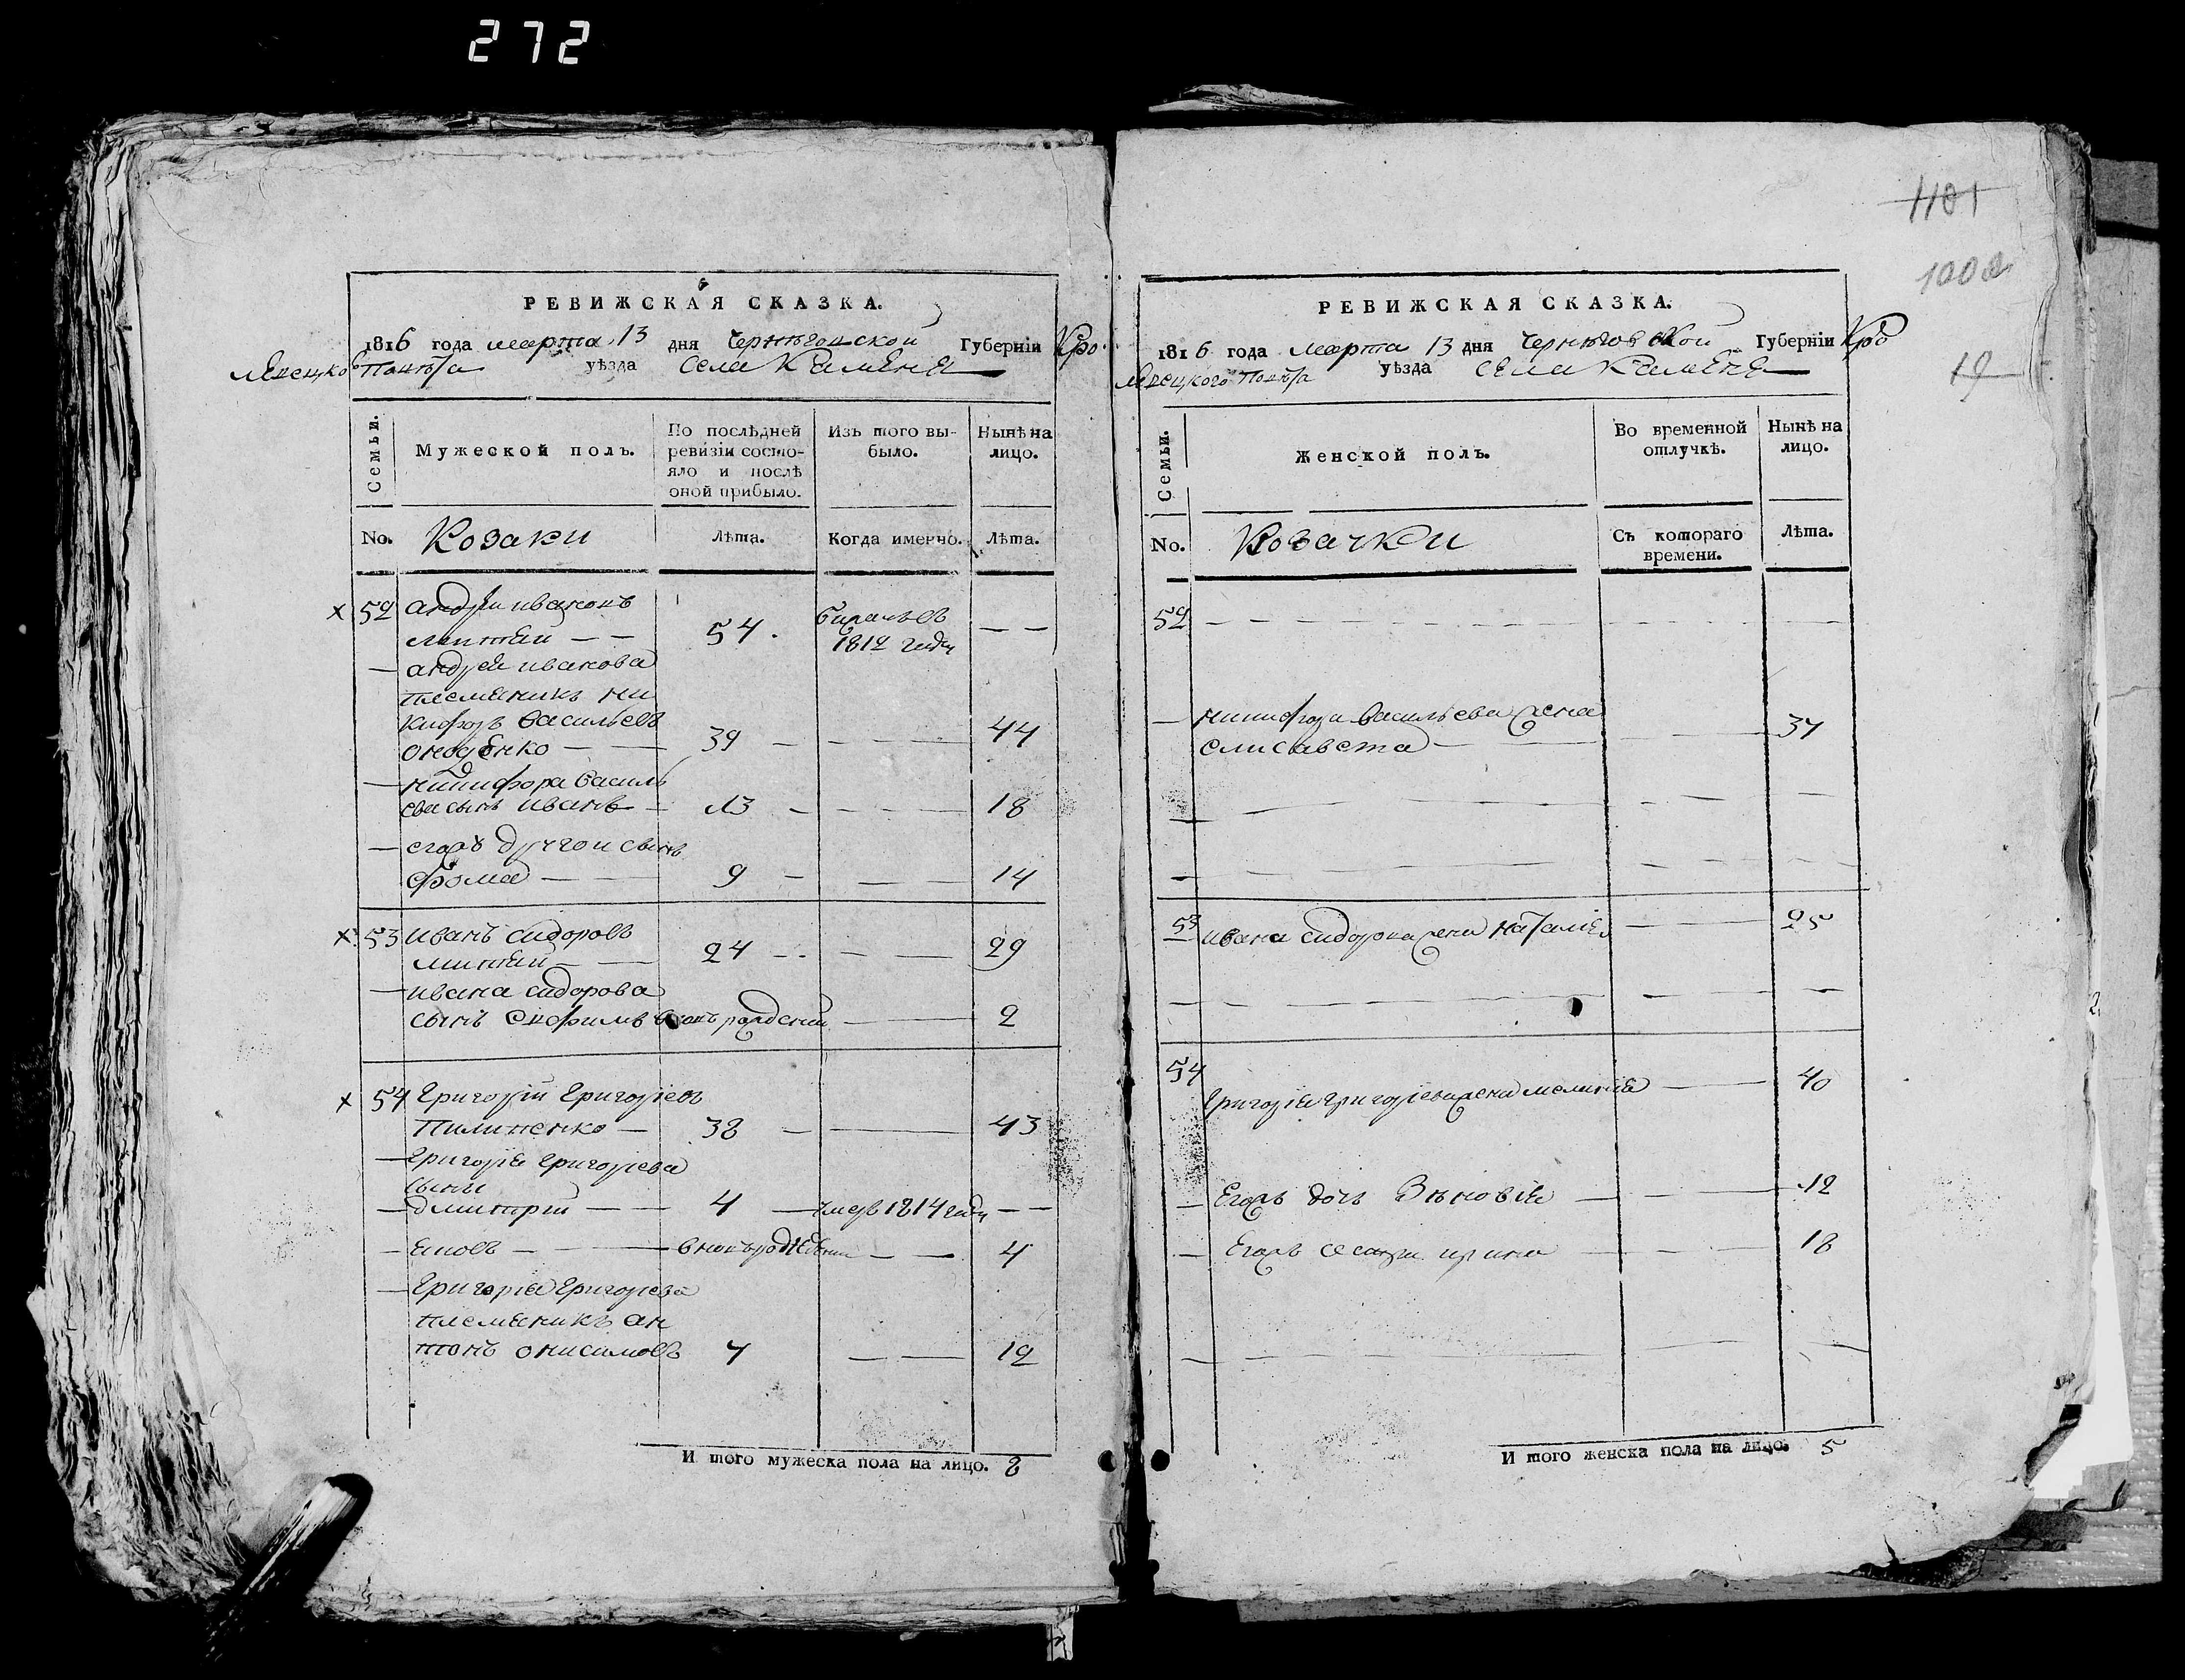 272
РЕВИЖСКАЯ СКАЗКА.
1816 года марта 13 дня Черниговской Губерніи Кро
левецкого Повѣта уѣзда села Каменя
Семьи.
Мужеской полъ.
По послѣдней ревизіи состо-
яло и послѣ оной прибыло.
Изъ того вы-
было.
Нынѣ на лицо.
No.
Козаки
Лѣта.
Когда именно.
Лѣта.
52 андрей ивановъ
54.
1812 года
андрея иванова
племеникъ ни
кифоръ васильевъ
39 44
никифора василь
ева сынъ иванъ 13 18
егожъ другои сынъ
фома 9 14
53 иванъ сидоровъ
24 29
ивана сидорова
сынъ вновь рождений 2
54 Григорій Григоріевъ
Пилипенко 38 43
Григорія Григоріева
сыны
дмитрій 4 умерв 1814 года
вновь рожденни 4
Григорія Григоріева
племеникъ ан
тонъ онисимовъ 7 12
И того мужеска пола на лицо. 8
1101
1002
19
РЕВИЖСКАЯ СКАЗКА.
1816 года марта 13 дня Черниговской Губерніи Кро
левецкого Повѣта уѣзда села Каменя
Семьи.
Женской полъ.
Во временной
отлучкѣ.
Нынѣ на
лицо.
No.
Козачки
Съ котораго
времени.
Лѣта.
52
никифора васильева жена
елисавета 37
53 ивана сидорова жена наталія 25
54
Григорія григоріева жена меланія 40
Егожъ дочь Зѣновія 12
Егожъ сестра ирина 18
И того женска пола на лицо. 5